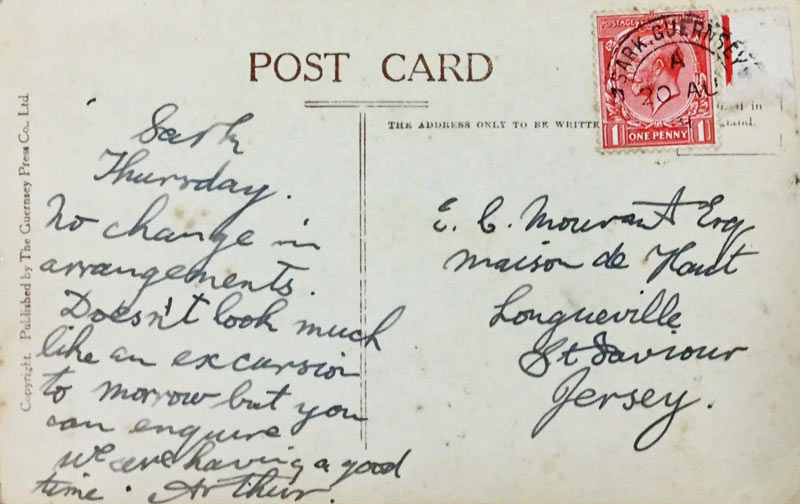 POST CARD
THE ADDRESS ONLY TO BE WRITTE
POSTAGE
SARK. GUERNSEY
A
20 AU
1 ONE PENNY 1
Copyright. Published by The Guernsey Press Co., Ltd.
Sark
Thursday.
No change in
arrangements.
Doesn't look much
like an excursion
to morrow but you
can enquire
We are having a good
time. Arthur.
E. C. Mourant Esq
maison de Haut
Longueville
St Saviour
Jersey.